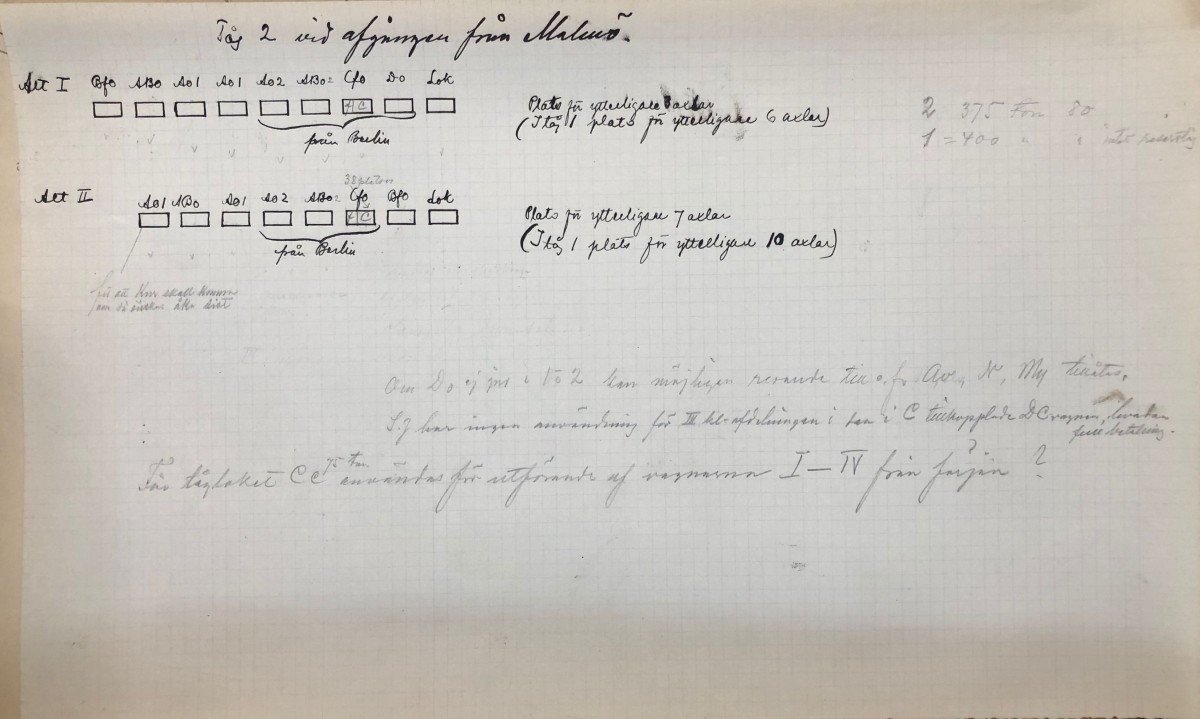 Tåg 2 vid afgången från Malmö.
Alt I Bfo ABo Ao1 Ao1 Ao2 ABo2 Cfo Do Lok
AC
från Berlin
Plats för ytterligare 3 axlar
(I tåg 1 plats för ytterligare 6 axlar)
2 375 Ton 80
1 = 400 " "
38 platser
Alt II Ao1 ABo Ao1 Ao2 ABo2 Cfo Bfo Lok
C
från Berlin
Plats för ytterligare 7 axlar
(I tåg 1 plats för ytterligare 10 axlar)
skall komma
åka sist
Om Do ej i 2 kan möjligen resande till o. fr. Av, N, My tillåtas.
S.J har ingen användning för III kl-afdelningen i C tillkopplade DC vagnen,
full betalning.
75 ton
Får tågloket CC användas för utförande af vagnarna I–IV från färjan?